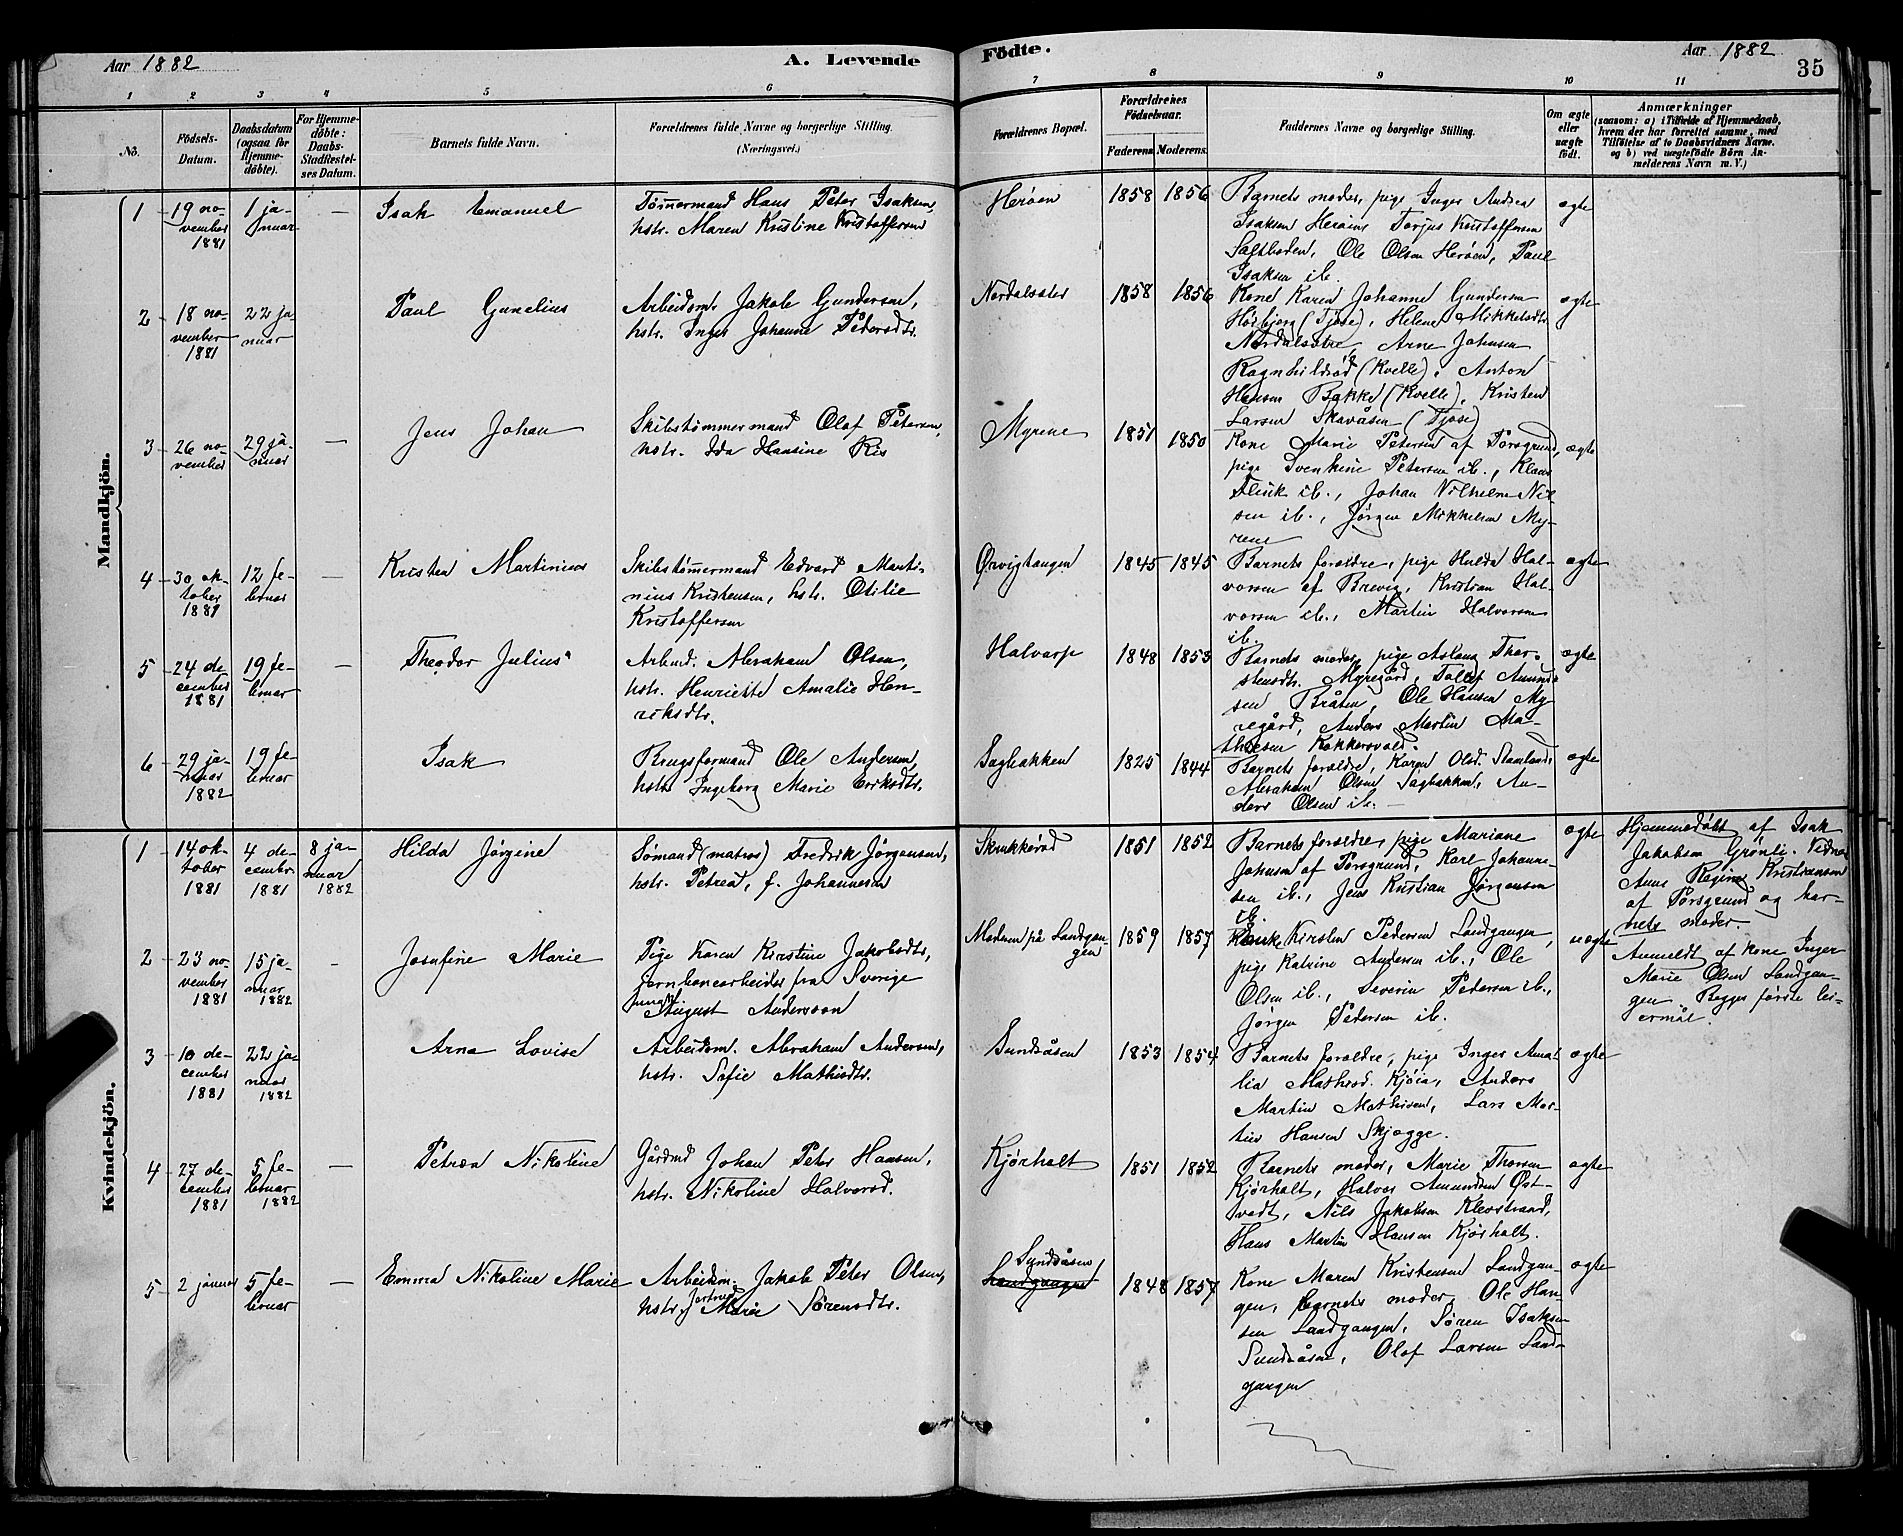 Aar 1882 A. Levende Födte. Aar 1882 35
1 2 3 4 5 6 7 8 9 10 11
No. Födsels-Datum. Daabsdatum (ogsaa for Hjemme-döbte). For Hjemme-döbte: Daabs-Stadfæstel-ses Datum. Barnets fulde Navn. Forældrenes fulde Navne og borgerlige Stilling. (Næringsvei.) Forældrenes Bopæl. Forældrenes Födselsaar. Faderens Moderens. Faddernes Navne og borgerlige Stilling. Om ægte eller uægte födt. Anmærkninger
(saasom: a) i Tilfælde af Hjemmedaab,
hvem der har forrettet samme, med
Tilföielse af to Daabsvidners Navne.
og b) ved uægtefödte Börn An-
melderens Navn m. V.)
Mandkjön.
1 19 no-vember 1881 1 ja-nuar — Isak Emanuel
Tömmermand Hans Peter Isaksen,
hstr. Maren Kristine Kristoffersen
Heröen 1858 1856
Barnets moder, pige Inger Andrea
Isaksen Heröen, Torjus Kristoffersen
Saltboden, Ole Olsen Heröen, Paul
Isaksen ib.
ægte
2 18 no-vember 1881 22 ja-nuar Paul Gunelius
Arbeidsm. Jakob Gundersen,
hstr. Inger Johanne Pedersdtr.
Nordalsæter 1858 1856
Kone Karen Johanne Gundersen
(Tjose), Helene Mikkelsdtr.
Nordalsætre, Arne Johnsen
Ragnhildsröd (Kvelle), Anton
Hansen Bakke (Kvelle), Kristen
Larsen Skavåsen (Tjose)
ægte
3 26 no-vember 29 ja-nuar — Jens Johan
Skibstömmermand Olaf Petersen,
hstr. Ida Hansine Ris
Myrene 1851 1850
Kone Marie Petersen af Porsgrund,
pige Svenkine Petersen ib., Klaus
Flink ib., Johan Vilhelm Nil-
sen ib., Jörgen Mikkelsen My-
rene
ægte
4 30 ok-tober 1881 12 fe-bruar — Kristen Martinius
Skibstömmermand Edvard Marti-
nius Kristensen, hstr. Otilie
Kristoffersen
Örvigtangen 1845 1845
Barnets forældre, pige Hulda Hal-
vorsen af Brevig, Kristian Hal-
vorsen ib., Martin Halvorsen
ib.
ægte
5 24 de-cember 1881 19 fe-bruar — Theodor Julius
Arbmd. Abraham Olsen,
hstr. Henriette Amalie Hen-
riksdtr.
Halvarp 1848 1853
Barnets moder, pige Aslaug Thor-
stensdtr. Myregård, Tollef Amund-
sen Bråten, Ole Hansen My-
regård, Anders Martin Ma-
thisen Kokkersvold.
ægte
6 29 ja-nuar 1882 19 fe-bruar Isak
Brugsformand Ole Andersen,
hstr. Ingeborg Marie Eriksdtr.
Sagbakken 1825 1844
Barnets forældre, Karen Olsd. Stamland,
Abraham Olsen Sagbakken, An-
ders Olsen ib. —
ægte
Kvindekjön.
1 14 ok-tober 1881 4 de-cembr 1881 8 ja-nuar 1882 Hilda Jörgine
Sömand (matros) Fredrik Jörgensen,
hstr. Petrea, f. Johannesen
Skrukkeröd 1851 1852
Barnets forældre, pige Mariane
Johnsen af Porsgrund, Karl Johanne-
sen ib., Jens Kristian Jörgensen
ib.
ægte
Hjemmedöbt af Isak
Jakobsen Grönli. Vidner
Anne Regine Kristiansen
af Porsgrund og bar-
nets moder.
2 23 no-vember 1881 15 ja-nuar 1882 - Josefine Marie
Pige Karen Kirstine Jakobsdtr,
jernbanearbeider fra Sverige
ungk. August Andersson
Moderen på Landgan-
gen 1859 1857
Enke Kirsten Pedersen Landgangen,
pige Katrine Andersen ib., Ole
Olsen ib., Severin Pedersen ib.,
Jörgen Pedersen ib.
uægte
Anmeldt af kone Inger
Marie Olsen Landgan-
gen. Begges förste lei-
ermål.
3 10 de-cember 1881 22 ja-nuar 1882 Arna Lovise
Arbeidsm. Abraham Andersen,
hstr. Sofie Mathisdtr.
Sundsåsen 1853 1854
Barnets forældre, pige Inger Ama-
lia Mathisd. Kjöia, Anders
Martin Mathisen, Lars Mar-
tin Hansen Skjegge.
ægte
4 27 de-cember 1881 5 fe-bruar 1882 — Petrea Nikoline
Gårdmd Johan Peter Hansen,
hstr. Nikoline Halvorsd.
Kjörholt 1851 1852
Barnets moder, Marie Thorsen
Kjörholt, Halvor Amundsen Öst-
vedt, Nils Jakobsen Klevstrand,
Hans Martin Hansen Kjörholt.
ægte
5 2 januar 5 fe-bruar — Emma Nikoline Marie
Arbeidsm. Jakob Peter Olsen,
hstr. Jertrud Marie Sörensdtr.
Sundsåsen
Landgangen 1848 1857
Kone Maren Kristensen Landgan-
gen, barnets moder, Ole Han-
sen Landgangen, Sören Isaksen
Sundsåsen, Olaf Larsen Land-
gangen
ægte